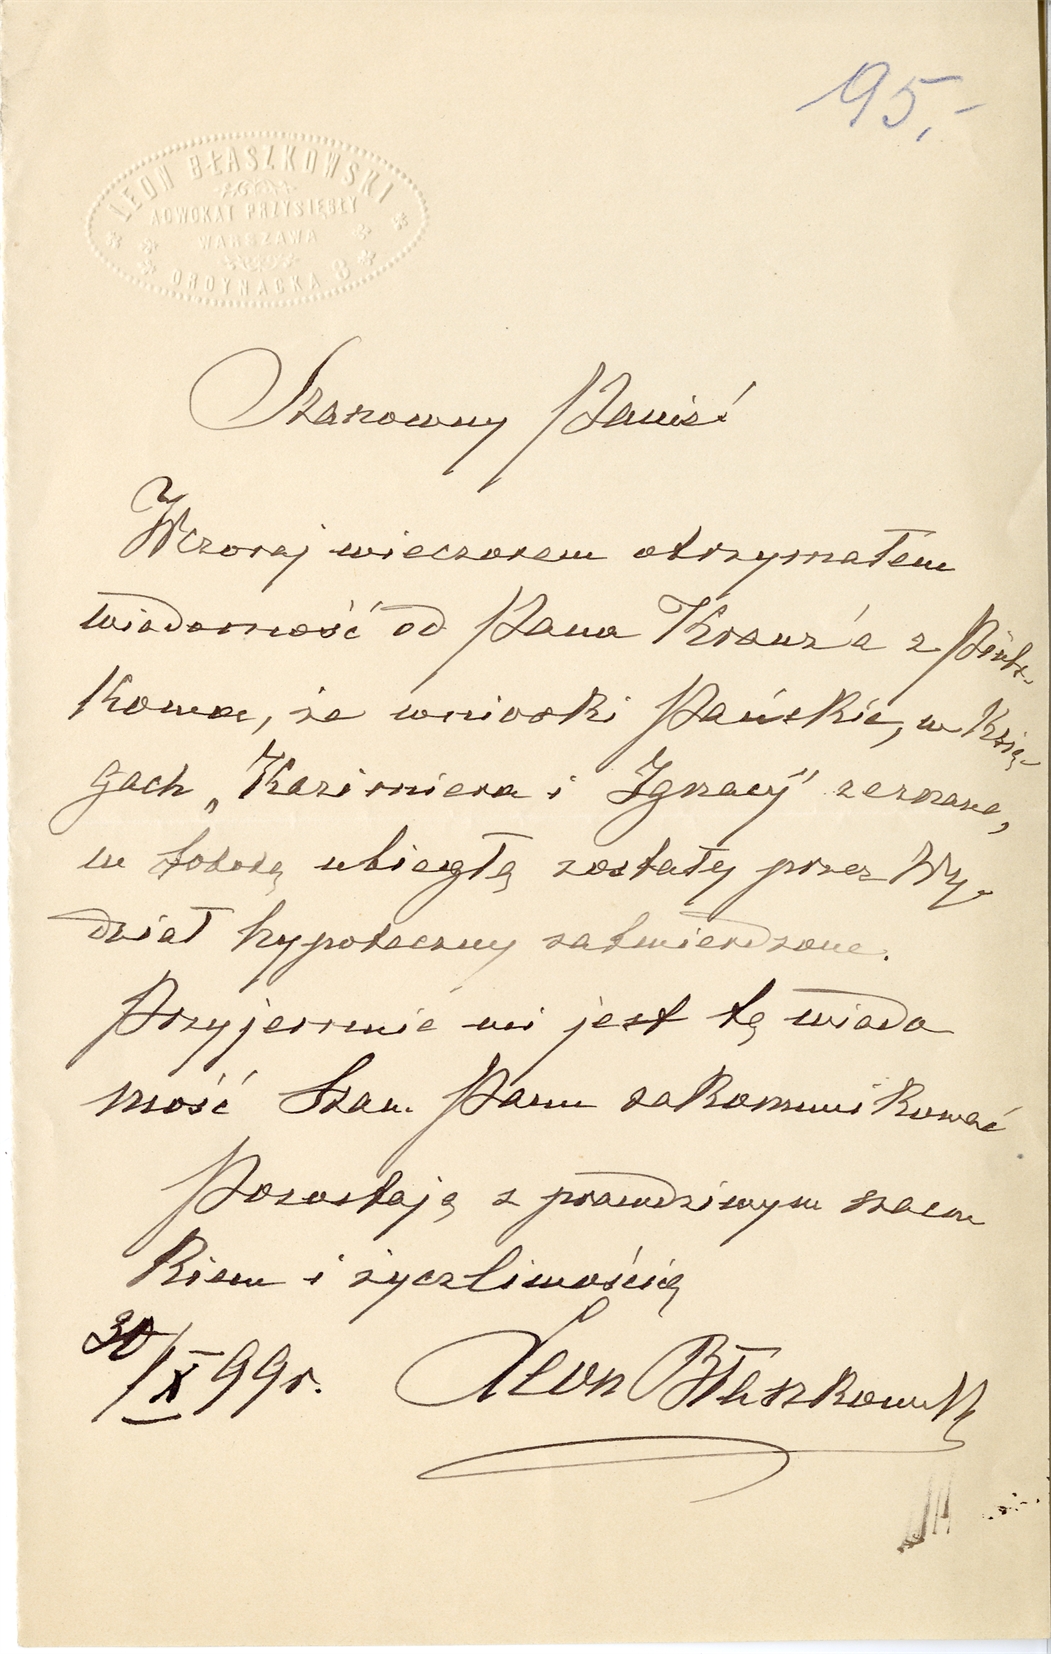 95,-
LEON BŁASZKOWSKI
ADWOKAT PRZYSIĘGŁY
WARSZAWA
ORDYNACKA 8
Szanowny Panie!
Wczoraj wieczorem otrzymałem
wiadomość od Pana Krauz'a z Piotr-
kowa, że wnioski Pańskie, w Księ-
gach „Kazimiera i Ignacy" zeznane,
w sobotę ubiegłą zostały przez Wy-
dział hypoteczny zatwierdzone.
Przyjemnie mi jest tę wiado
mość Szan. Panu zakomunikować
Pozostaję z prawdziwym szacun
kiem i życzliwością
30/X 99 r. Leon Błaszkowski